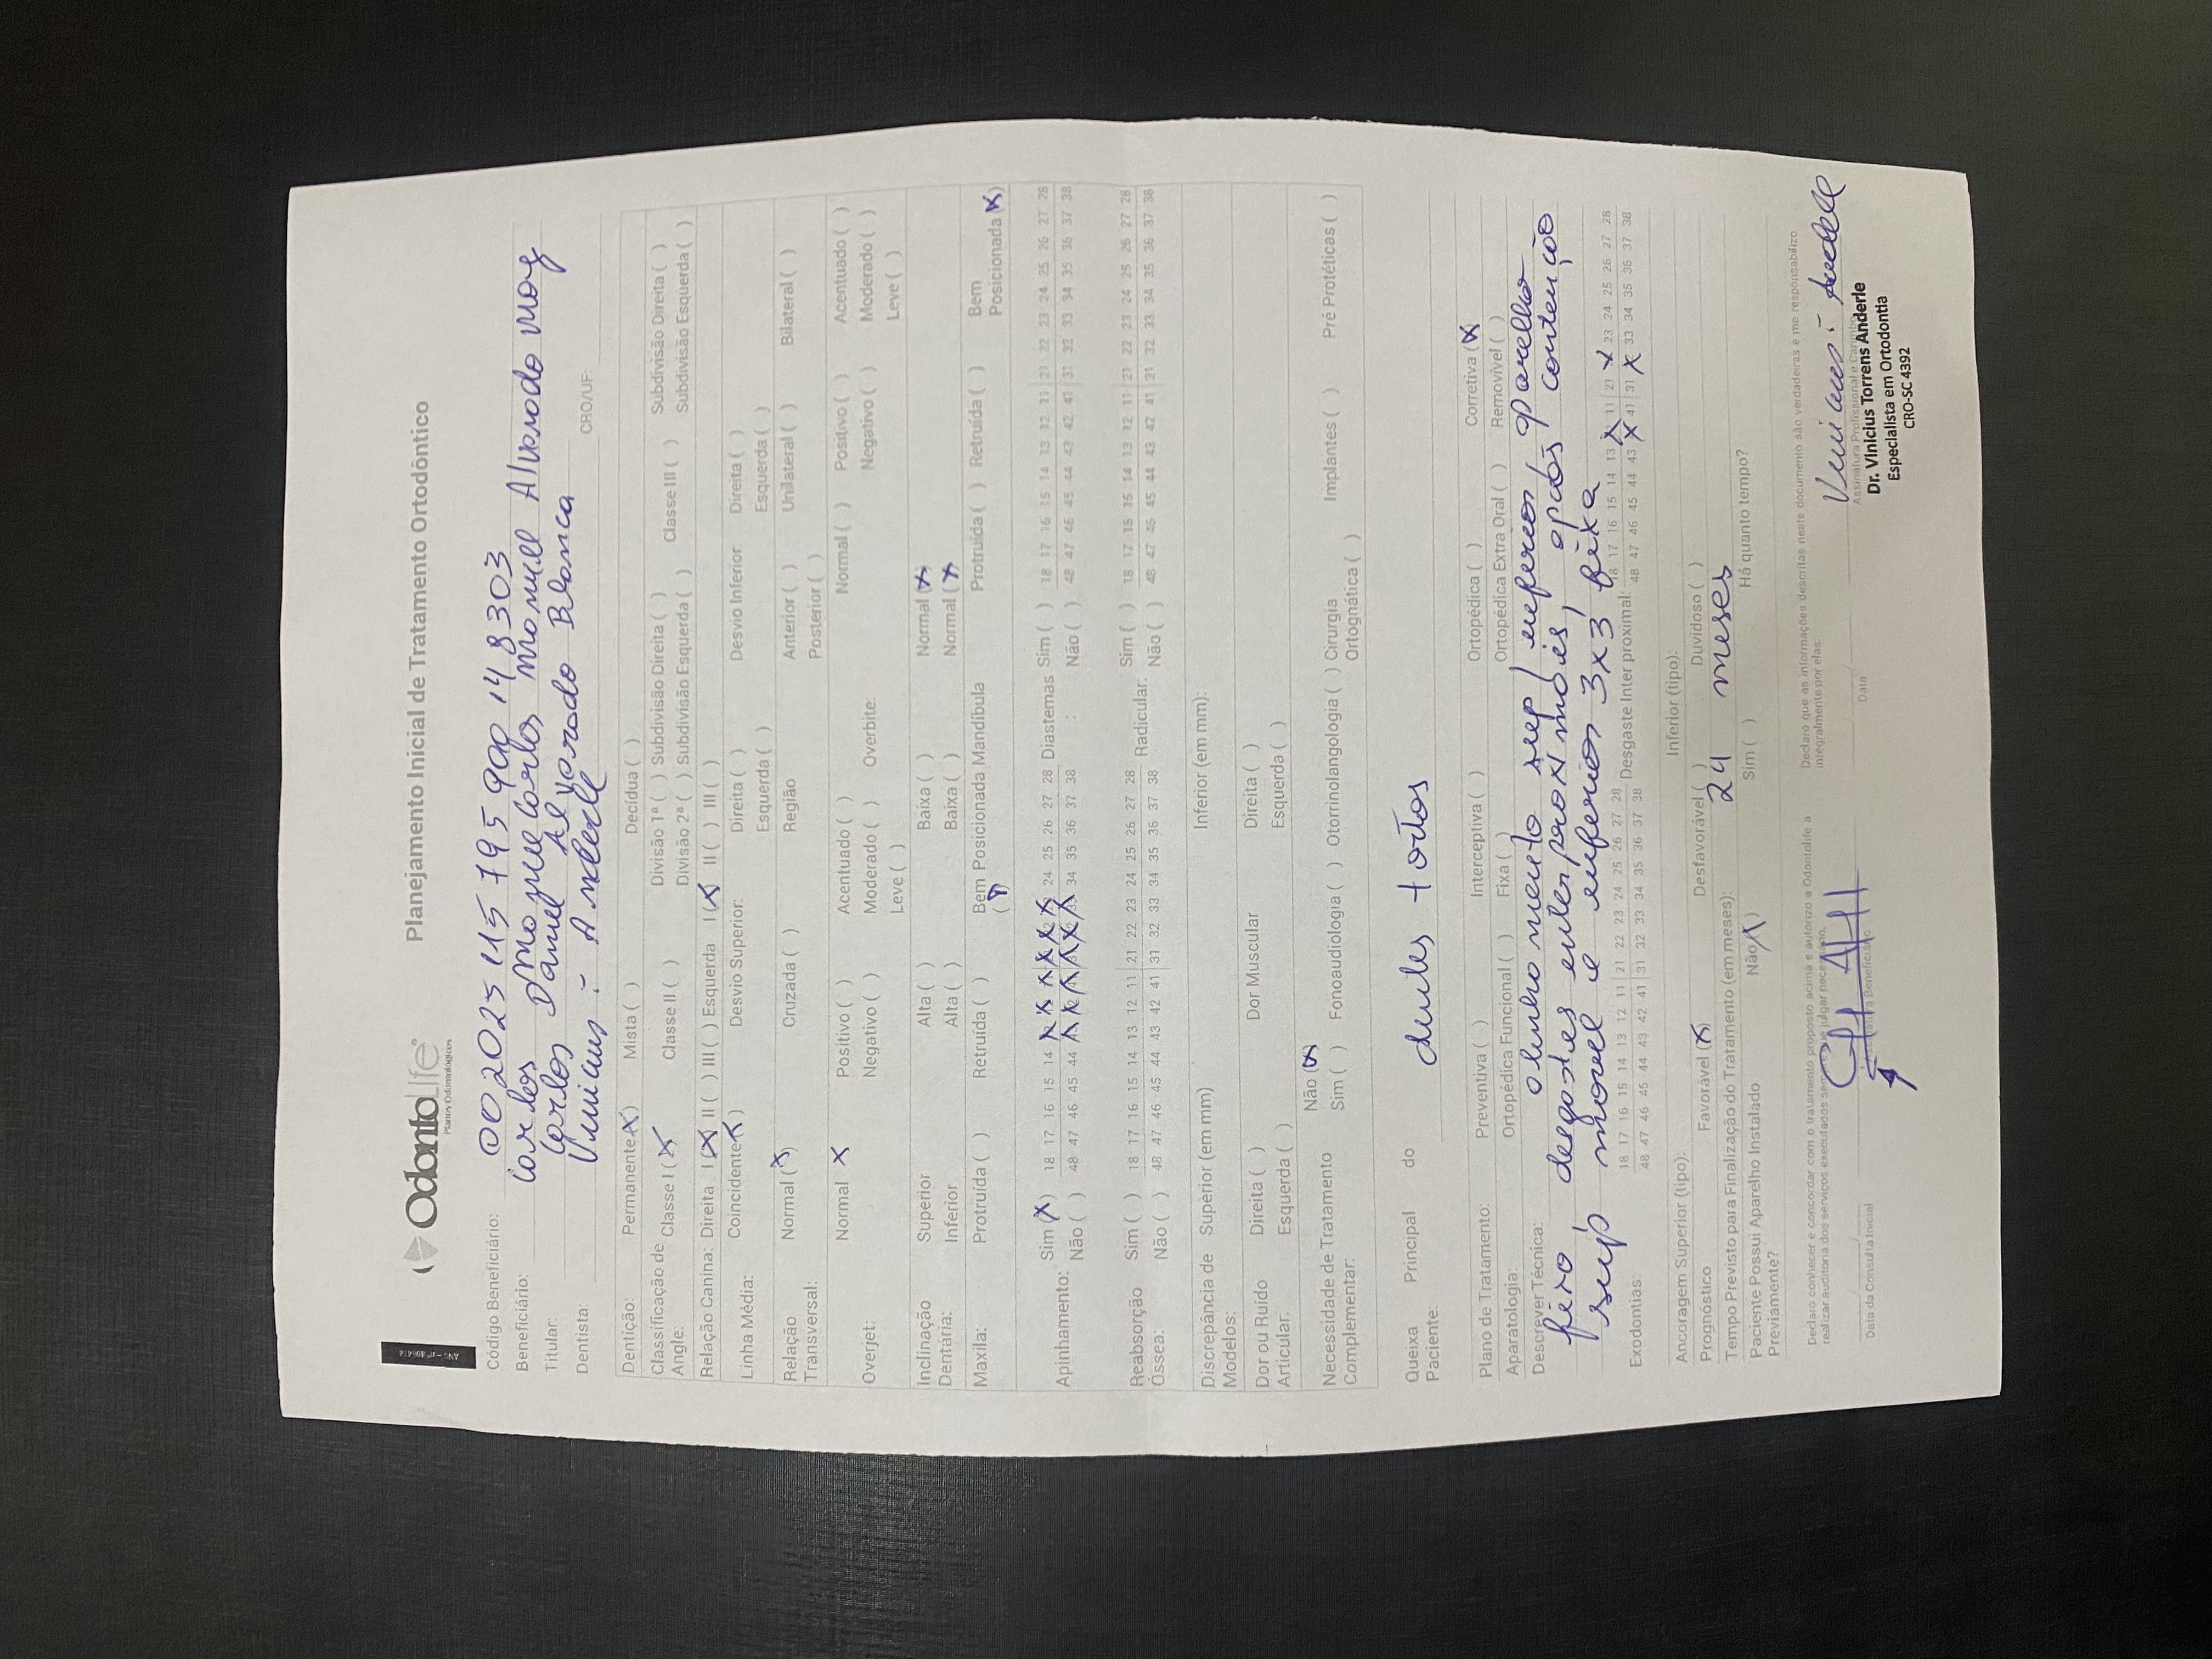 ANS - nº 406414
OdontoLife
Planos Odontológicos
Planejamento Inicial de Tratamento Ortodôntico
Código Beneficiário: 002025 115 795 900 14 8303
Beneficiário: Carlos
Titular: Carlos Daniel Blanca
Dentista: Vinicius CRO/UF:
Dentição: Permanente (X) Mista ( ) Decídua ( )
Classificação de Angle: Classe I (X) Classe II ( ) Divisão 1ª ( ) Subdivisão Direita ( ) Classe III ( ) Subdivisão Direita ( )
Divisão 2ª ( ) Subdivisão Esquerda ( ) Subdivisão Esquerda ( )
Relação Canina: Direita I (X) II ( ) III ( ) Esquerda I (X) II ( ) III ( )
Linha Média: Coincidente (X) Desvio Superior: Direita ( ) Desvio Inferior Direita ( )
Esquerda ( ) Esquerda ( )
Relação Transversal: Normal (X) Cruzada ( ) Região Anterior ( ) Unilateral ( ) Bilateral ( )
Posterior ( )
Overjet: Normal X Positivo ( ) Acentuado ( ) Overbite: Normal ( ) Positivo ( ) Acentuado ( )
Negativo ( ) Moderado ( ) Negativo ( ) Moderado ( )
Leve ( ) Leve ( )
Inclinação Dentária: Superior Alta ( ) Baixa ( ) Normal (X)
Inferior Alta ( ) Baixa ( ) Normal (X)
Maxila: Protruída ( ) Retruída ( ) Bem Posicionada (X) Mandíbula Protruída ( ) Retruída ( ) Bem Posicionada (X)
Apinhamento: Sim (X) 18 17 16 15 14 X X X X X X 24 25 26 27 28 Diastemas Sim ( ) 18 17 16 15 14 13 12 11 21 22 23 24 25 26 27 28
Não ( ) 48 47 46 45 44 X X X X X X 34 35 36 37 38 : Não ( ) 48 47 46 45 44 43 42 41 31 32 33 34 35 36 37 38
Reabsorção Óssea: Sim ( ) 18 17 16 15 14 13 12 11 21 22 23 24 25 26 27 28 Radicular: Sim ( ) 18 17 16 15 14 13 12 11 21 22 23 24 25 26 27 28
Não ( ) 48 47 46 45 44 43 42 41 31 32 33 34 35 36 37 38 Não ( ) 48 47 46 45 44 43 42 41 31 32 33 34 35 36 37 38
Discrepância de Modelos: Superior (em mm) Inferior (em mm):
Dor ou Ruído Articular: Direita ( ) Dor Muscular Direita ( )
Esquerda ( ) Esquerda ( )
Necessidade de Tratamento Complementar: Não (X)
Sim ( ) Fonoaudiologia ( ) Otorrinolangologia ( ) Cirurgia Ortognática ( ) Implantes ( ) Pré Protéticas ( )
Queixa Principal do Paciente: dentes tortos
Plano de Tratamento: Preventiva ( ) Interceptiva ( ) Ortopédica ( ) Corretiva (X)
Aparatologia: Ortopédica Funcional ( ) Fixa ( ) Ortopédica Extra Oral ( ) Removível ( )
Descrever Técnica: alinhamento sup/ inferior aparelho
fixo desgastes interproximais, após contenção
sup móvel e inferior 3x3 fixa
Exodontias: 18 17 16 15 14 13 12 11 21 22 23 24 25 26 27 28 Desgaste Inter proximal: 18 17 16 15 14 13 X 11 21 X 23 24 25 26 27 28
48 47 46 45 44 43 42 41 31 32 33 34 35 36 37 38 48 47 46 45 44 43 X 41 31 X 33 34 35 36 37 38
Ancoragem Superior (tipo): Inferior (tipo):
Prognóstico Favorável (X) Desfavorável ( ) Duvidoso ( )
Tempo Previsto para Finalização do Tratamento (em meses): 24 meses
Paciente Possui Aparelho Instalado Previamente? Não (X) Sim ( ) Há quanto tempo?
Declaro conhecer e concordar com o tratamento proposto acima e autorizo a Odontolife a
realizar auditoria dos serviços executados sempre que julgar necessário.
Declaro que as informações descritas neste documento são verdadeiras e me responsabilizo
integralmente por elas.
Data da Consulta Inicial Assinatura Beneficiário Data Assinatura Profissional e Carimbo
Dr. Vinicius Torrens Anderle
Especialista em Ortodontia
CRO-SC 4392